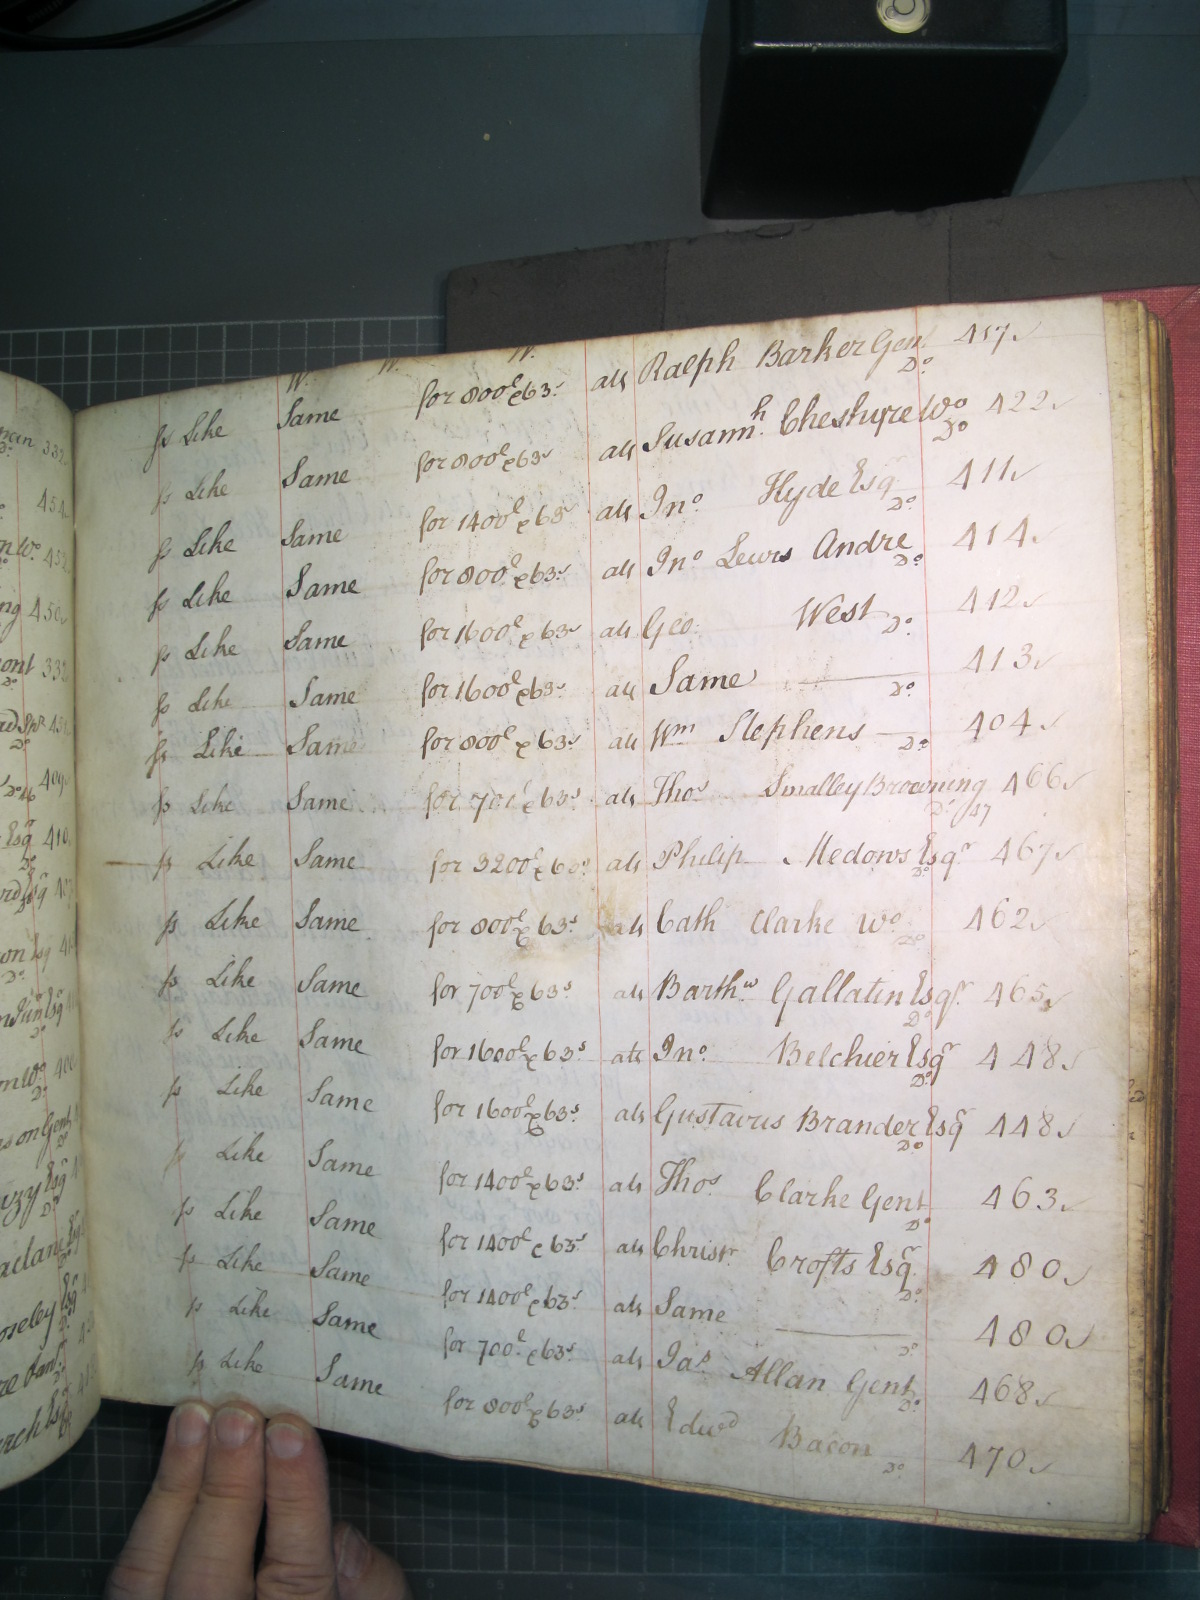 ps Like Same for 800£ e 63s als Ralph Barker Gent Do 457
ps Like Same for 800£ e 63s als Susannh Cheshyre Wo Do 422
ps Like Same for 1400£ e 63s als Jno Hyde Esqr Do 411
ps Like Same for 800£ e 63s als Jno Lewis Andre Do 414
ps Like Same for 1600£ e 63s als Geo. West Do 412
ps Like Same for 1600£ e 63s als Same Do 413
ps Like Same for 800£ e 63s als Wm Stephens Do 404
ps Like Same for 701£ e 63s als Thos Smalley Browning Do /47 466
ps Like Same for 3200£ e 63s als Philip Medows Esqr Do 467
ps Like Same for 800£ e 63s als Cath Clarke Wo Do 462
ps Like Same for 700£ e 63s als Barthw Gallatin Esqr Do 465
ps Like Same for 1600£ e 63s als Jno Belchier Esqr Do 448
ps Like Same for 1600£ e 63s als Gustavus Brander Esqr Do 448
ps Like Same for 1400£ e 63s als Thos Clarke Gent Do 463
ps Like Same for 1400£ e 63s als Christr Crofts Esqr Do 480
ps Like Same for 1400£ e 63s als Same Do 480
ps Like Same for 700£ e 63s als Jas Allan Gent Do 468
ps Like Same for 800£ e 63s als Edwd Bacon Do 470